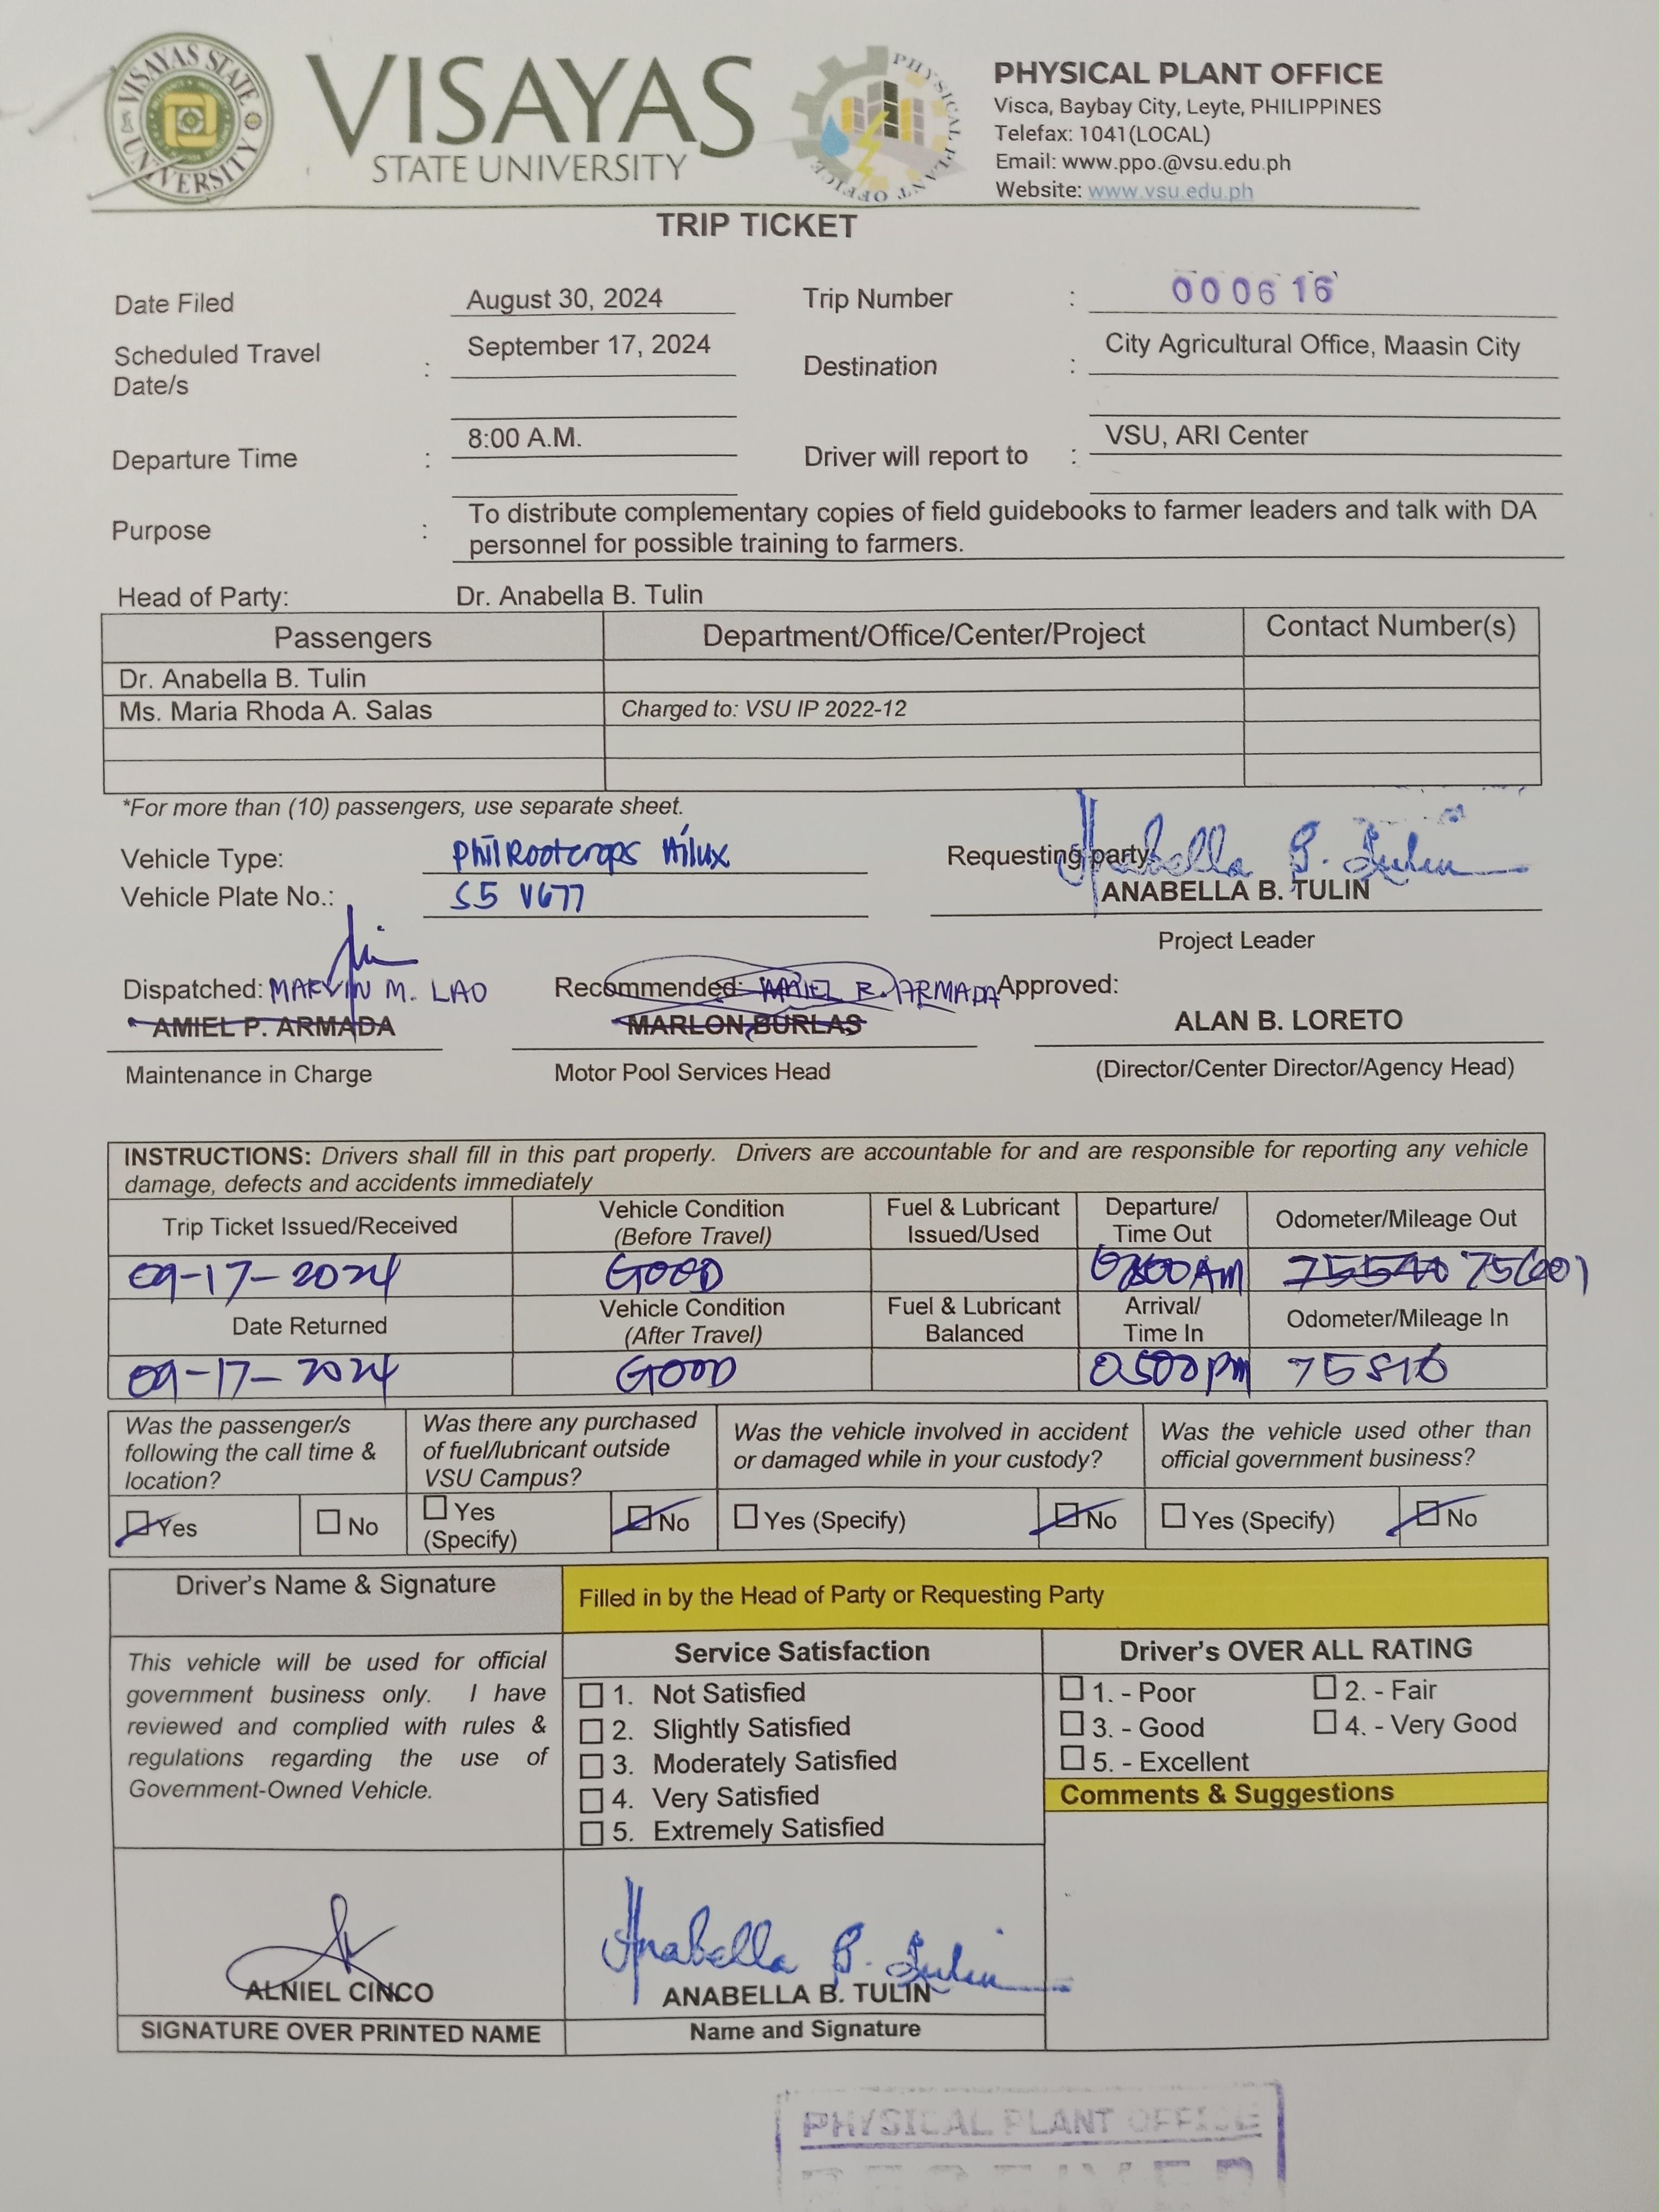 VISAYAS STATE UNIVERSITY
VISAYAS
STATE UNIVERSITY
PHYSICAL PLANT OFFICE
PHYSICAL PLANT OFFICE
Visca, Baybay City, Leyte, PHILIPPINES
Telefax: 1041(LOCAL)
Email: www.ppo.@vsu.edu.ph
Website: www.vsu.edu.ph
TRIP TICKET
Date Filed August 30, 2024 Trip Number : 000616
Scheduled Travel Date/s : September 17, 2024 Destination : City Agricultural Office, Maasin City
Departure Time : 8:00 A.M. Driver will report to : VSU, ARI Center
Purpose : To distribute complementary copies of field guidebooks to farmer leaders and talk with DA
personnel for possible training to farmers.
Head of Party: Dr. Anabella B. Tulin
Passengers Department/Office/Center/Project Contact Number(s)
Dr. Anabella B. Tulin
Ms. Maria Rhoda A. Salas Charged to: VSU IP 2022-12
*For more than (10) passengers, use separate sheet.
Vehicle Type: PhilRootcrops Hilux Requesting party: Anabella B. Tulin
Vehicle Plate No.: S5 V677 ANABELLA B. TULIN
Project Leader
Dispatched: MARVIN M. LAO Recommended: ARMADA Approved:
AMIEL P. ARMADA MARLON BURLAS ALAN B. LORETO
Maintenance in Charge Motor Pool Services Head (Director/Center Director/Agency Head)
INSTRUCTIONS: Drivers shall fill in this part properly. Drivers are accountable for and are responsible for reporting any vehicle
damage, defects and accidents immediately
Trip Ticket Issued/Received Vehicle Condition (Before Travel) Fuel & Lubricant Issued/Used Departure/ Time Out Odometer/Mileage Out
09-17-2024 GOOD
Date Returned Vehicle Condition (After Travel) Fuel & Lubricant Balanced Arrival/ Time In Odometer/Mileage In
09-17-2024 GOOD 0500pm
Was the passenger/s following the call time & location? Was there any purchased of fuel/lubricant outside VSU Campus? Was the vehicle involved in accident or damaged while in your custody? Was the vehicle used other than official government business?
Yes No Yes (Specify) No Yes (Specify) No Yes (Specify) No
Driver's Name & Signature Filled in by the Head of Party or Requesting Party
This vehicle will be used for official
government business only. I have
reviewed and complied with rules &
regulations regarding the use of
Government-Owned Vehicle.
Service Satisfaction
1. Not Satisfied
2. Slightly Satisfied
3. Moderately Satisfied
4. Very Satisfied
5. Extremely Satisfied
Driver's OVER ALL RATING
1. - Poor 2. - Fair
3. - Good 4. - Very Good
5. - Excellent
Comments & Suggestions
Anabella B. Tulin
ALNIEL CINCO ANABELLA B. TULIN
SIGNATURE OVER PRINTED NAME Name and Signature
PHYSICAL PLANT OFFICE